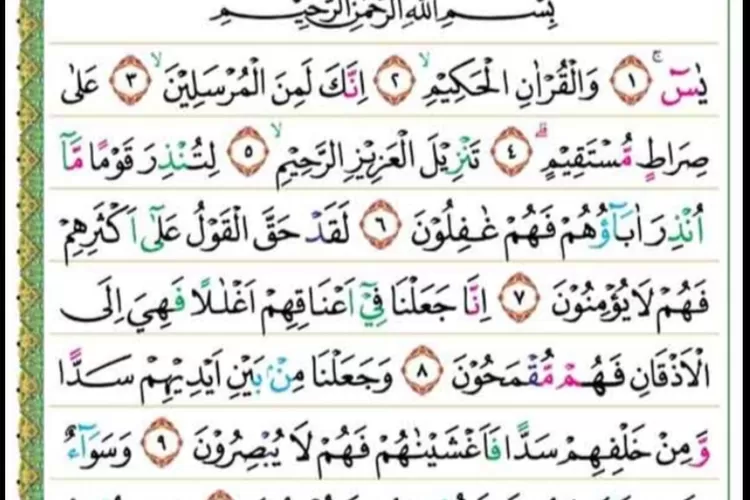 بِسْمِ اللهِ الرَّحْمٰنِ الرَّحِيْمِ
يٰسۤ ۚ ١ وَالْقُرْاٰنِ الْحَكِيْمِۙ ٢ اِنَّكَ لَمِنَ الْمُرْسَلِيْنَۙ ٣ عَلٰى
صِرَاطٍ مُّسْتَقِيْمٍۗ ٤ تَنْزِيْلَ الْعَزِيْزِ الرَّحِيْمِۙ ٥ لِتُنْذِرَ قَوْمًا مَّآ
اُنْذِرَ اٰبَاۤؤُهُمْ فَهُمْ غٰفِلُوْنَ ٦ لَقَدْ حَقَّ الْقَوْلُ عَلٰٓى اَكْثَرِهِمْ
فَهُمْ لَا يُؤْمِنُوْنَ ٧ اِنَّا جَعَلْنَا فِيْٓ اَعْنَاقِهِمْ اَغْلٰلًا فَهِيَ اِلَى
الْاَذْقَانِ فَهُمْ مُّقْمَحُوْنَ ٨ وَجَعَلْنَا مِنْۢ بَيْنِ اَيْدِيْهِمْ سَدًّا
وَّمِنْ خَلْفِهِمْ سَدًّا فَاَغْشَيْنٰهُمْ فَهُمْ لَا يُبْصِرُوْنَ ٩ وَسَوَاۤءٌ